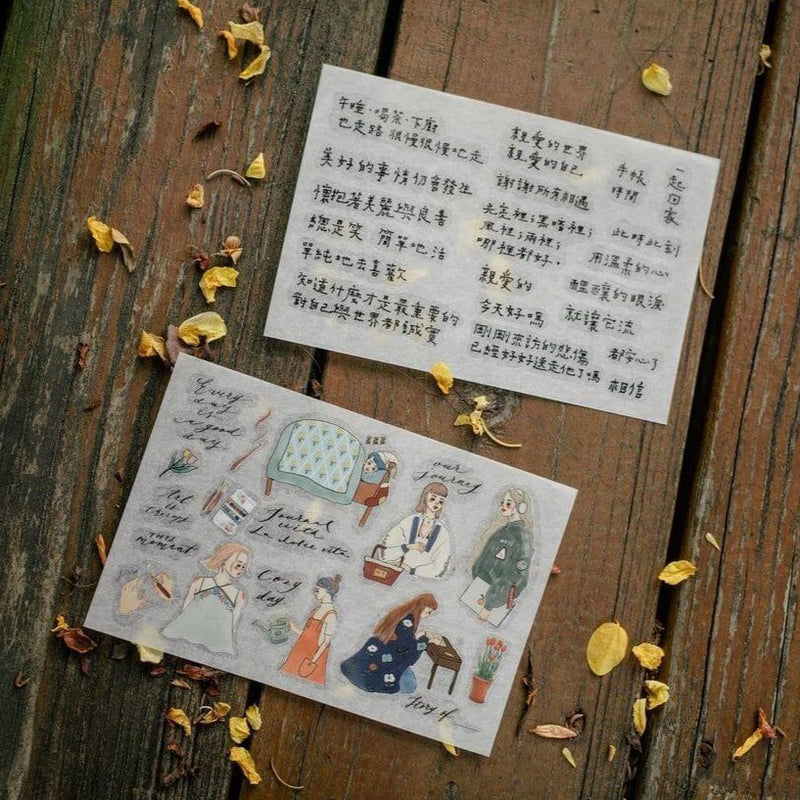 午睡·喝茶·下廚
也走路 很慢很慢地走
美好的事情切會發生
懷抱著美麗與良善
總是笑 簡單地活
單純地去喜歡
知道什麼才是最重要的
對自己與世界都誠實
親愛的世界
親愛的自己
謝謝所有相遇
光亮裡;黑暗裡;
風裡;雨裡;
哪裡都好.
親愛的
今天好嗎
剛剛來訪的悲傷
已經好好送走他了嗎
手帳
時間
一起回家
此時此刻
用溫柔的心
醞釀的眼淚
就讓它流
都安心了
相信
Every
day
is
a good
day
our
journey
Journal
with
La dolce vita
this
moment
Cozy
day